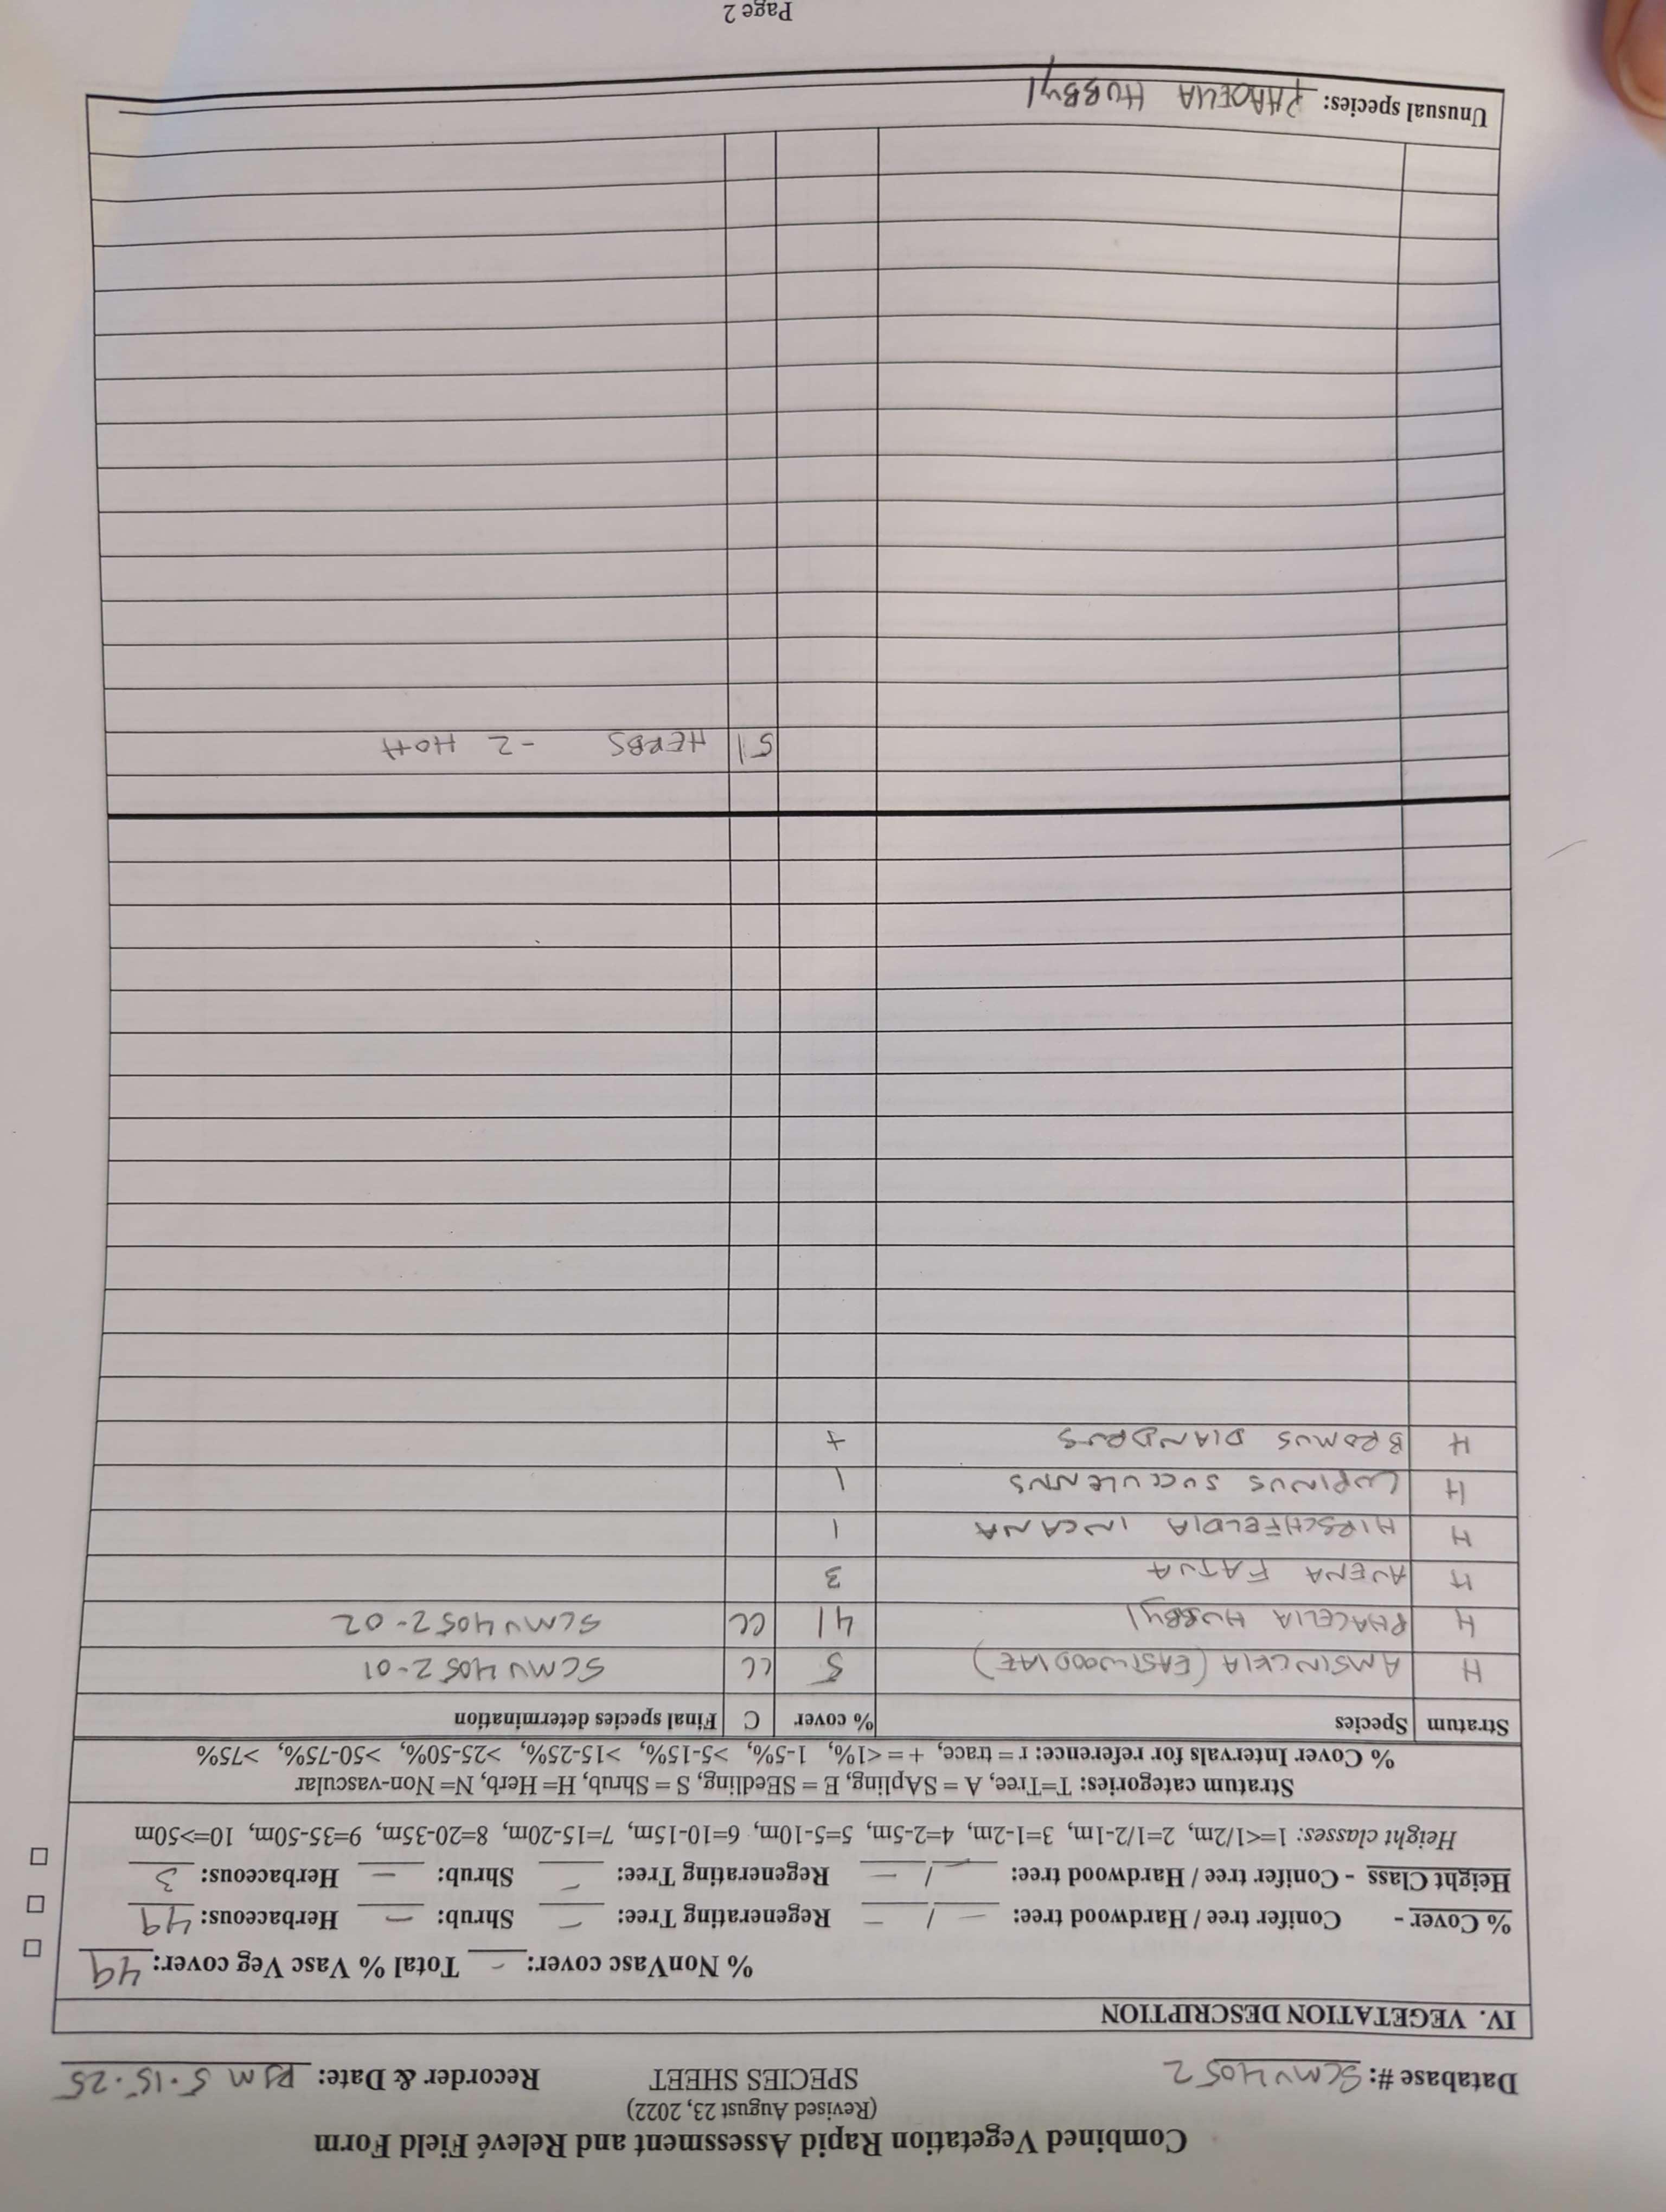 Combined Vegetation Rapid Assessment and Relevé Field Form
(Revised August 23, 2022)
Database #: SCMV4052 SPECIES SHEET Recorder & Date: RJM 5.15.25
IV. VEGETATION DESCRIPTION
% NonVasc cover: - Total % Vasc Veg cover: 49
% Cover - Conifer tree / Hardwood tree: - / - Regenerating Tree: - Shrub: - Herbaceous: 49
Height Class - Conifer tree / Hardwood tree: - / - Regenerating Tree: - Shrub: - Herbaceous: 3
Height classes: 1=<1/2m, 2=1/2-1m, 3=1-2m, 4=2-5m, 5=5-10m, 6=10-15m, 7=15-20m, 8=20-35m, 9=35-50m, 10=>50m
Stratum categories: T=Tree, A = SApling, E = SEedling, S = Shrub, H= Herb, N= Non-vascular
% Cover Intervals for reference: r = trace, + = <1%, 1-5%, >5-15%, >15-25%, >25-50%, >50-75%, >75%
Stratum Species % cover C Final species determination
H AMSINCKIA (EASTWOODIAE) 5 CC SCMV4052-01
H PHACELIA HUBBYI 41 CC SCMV4052-02
H AVENA FATUA 3
H HIRSCHFELDIA INCANA 1
H LUPINUS SUCCULENNS 1
H BROMUS DIANDRUS +
51 HERBS -2 HOH
Unusual species: PHACELIA HUBBYI
Page 2